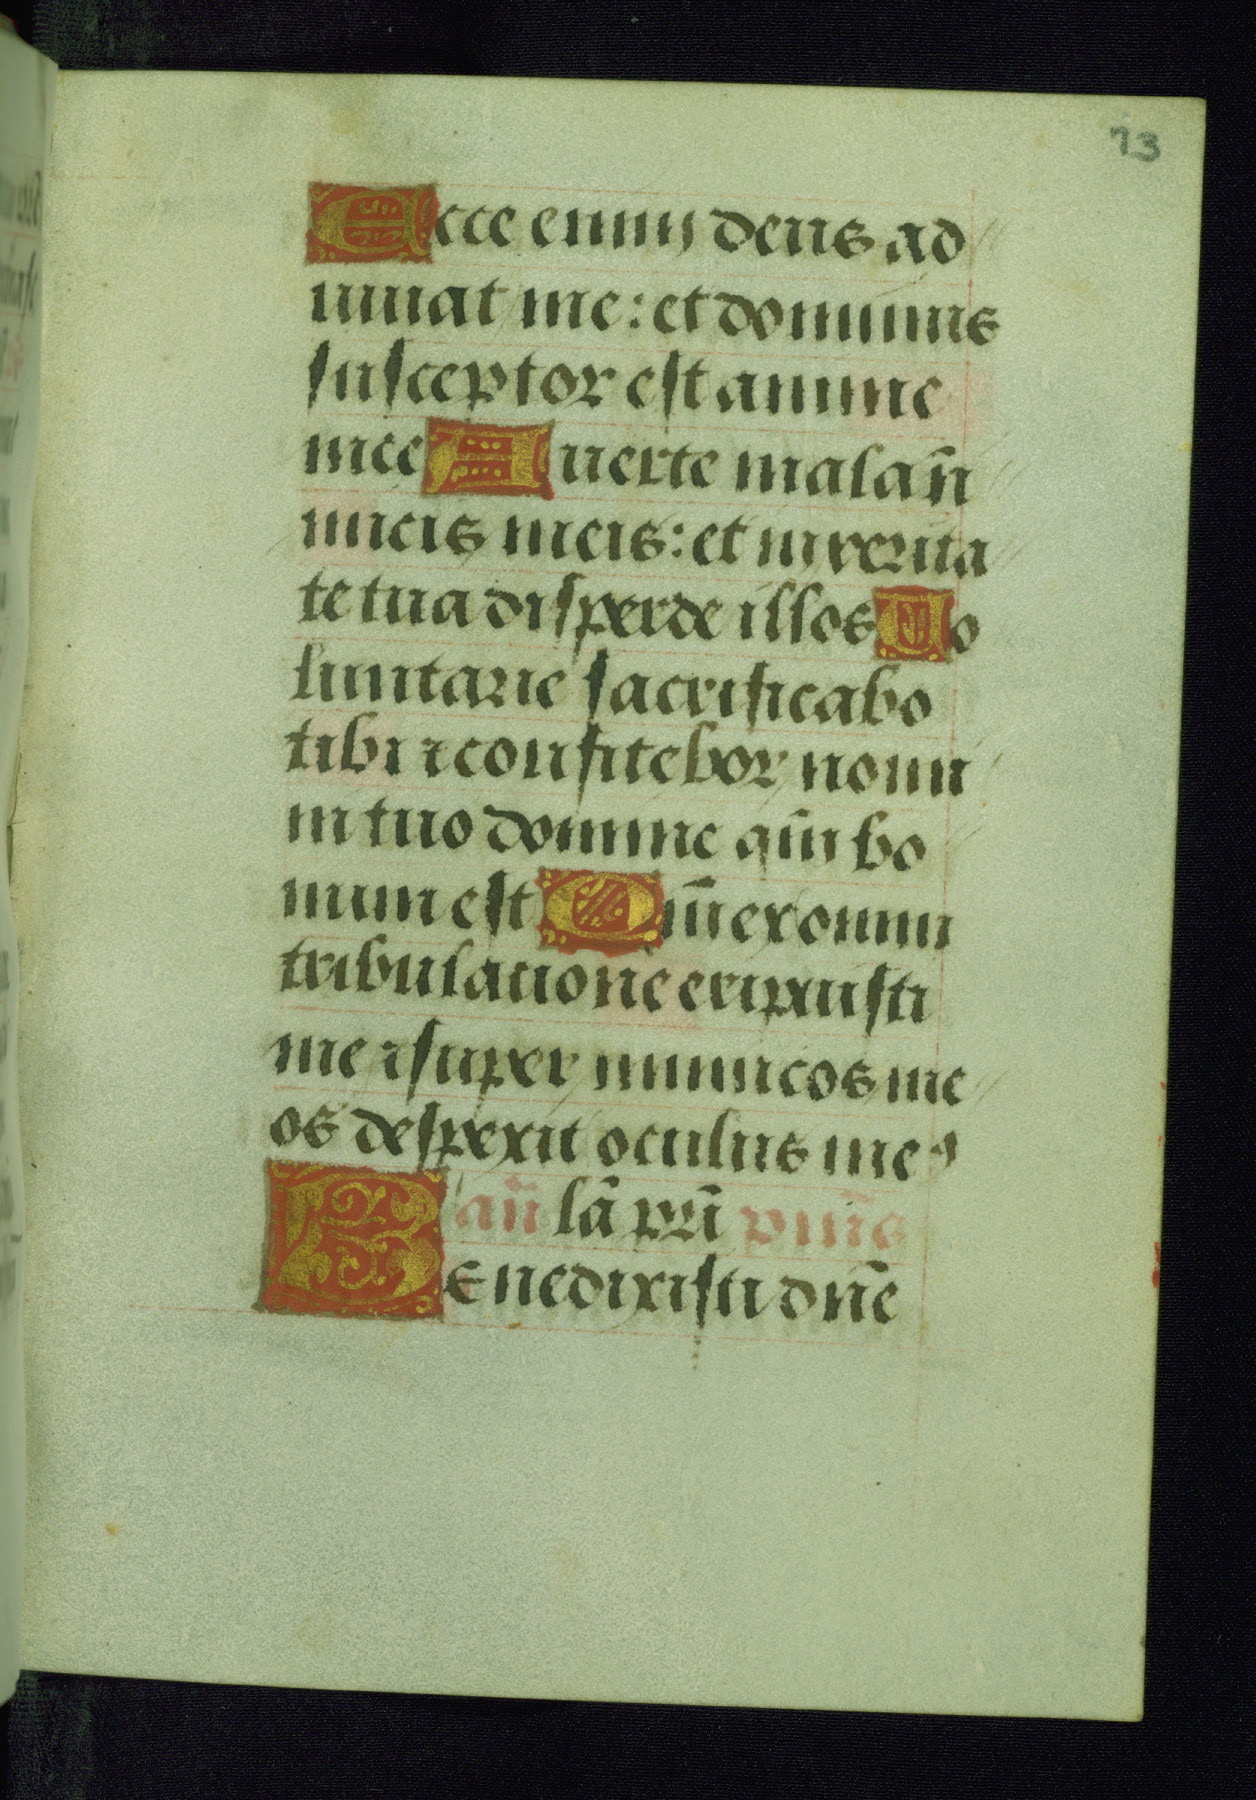 73
Ecce enim deus ad
iuuat me: et dominus
susceptor est anime
mee Auerte mala iñ
imicis meis: et in verita
te tua disperde illos Uo
luntarie sacrificabo
tibi ⁊ confitebor nomi
ni tuo domine qm̄ bo
num est Qm̄ ex omni
tribulatione eripuisti
me ⁊ super inimicos me
os despexit oculus meꝰ
añ lā
Benedixisti dn̄e